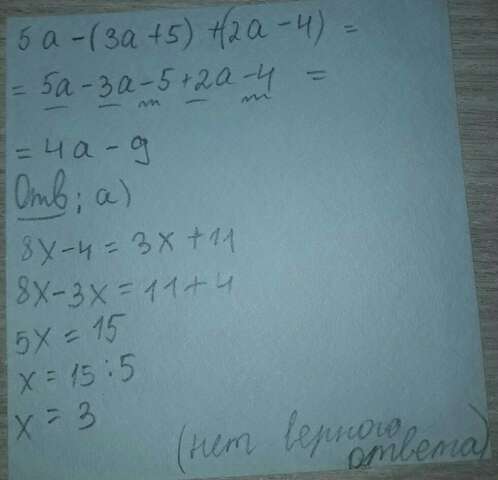 5a-(3a+5)+(2a-4)=
=5a-3a-5+2a-4=
=4a-9
Отв; а)
8x-4=3x+11
8x-3x=11+4
5x=15
x=15:5
x=3
(нет верного
ответа)